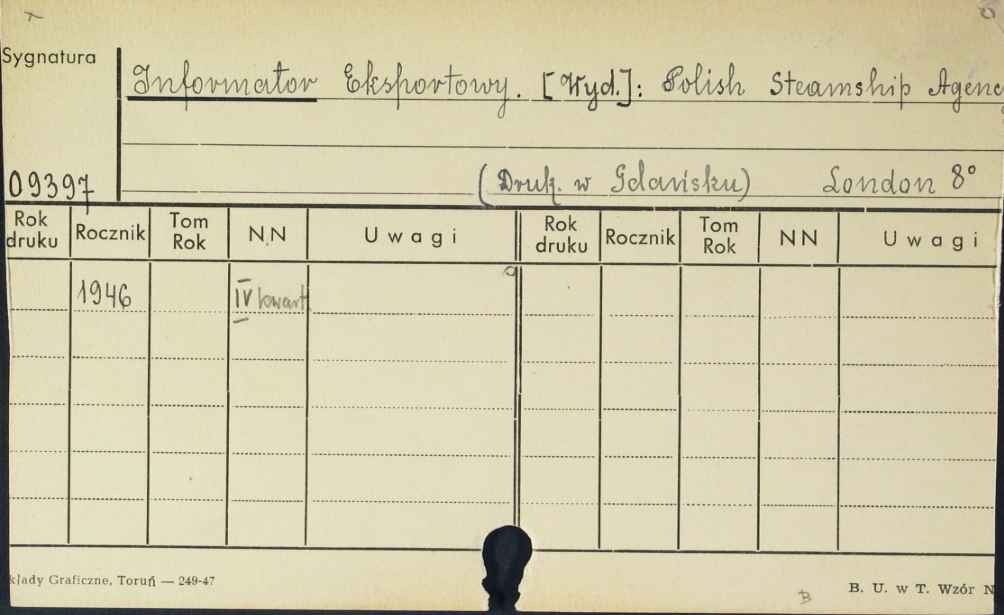 Sygnatura
Informator Eksportowy. [Wyd.]: Polish Steamship Agenc
09397 (Druk. w Gdańsku) London 8°
Rok druku Rocznik Tom Rok NN Uwagi Rok druku Rocznik Tom Rok NN Uwagi
1946 IV kwart.
kłady Graficzne, Toruń — 249-47
B. U. w T. Wzór N
B